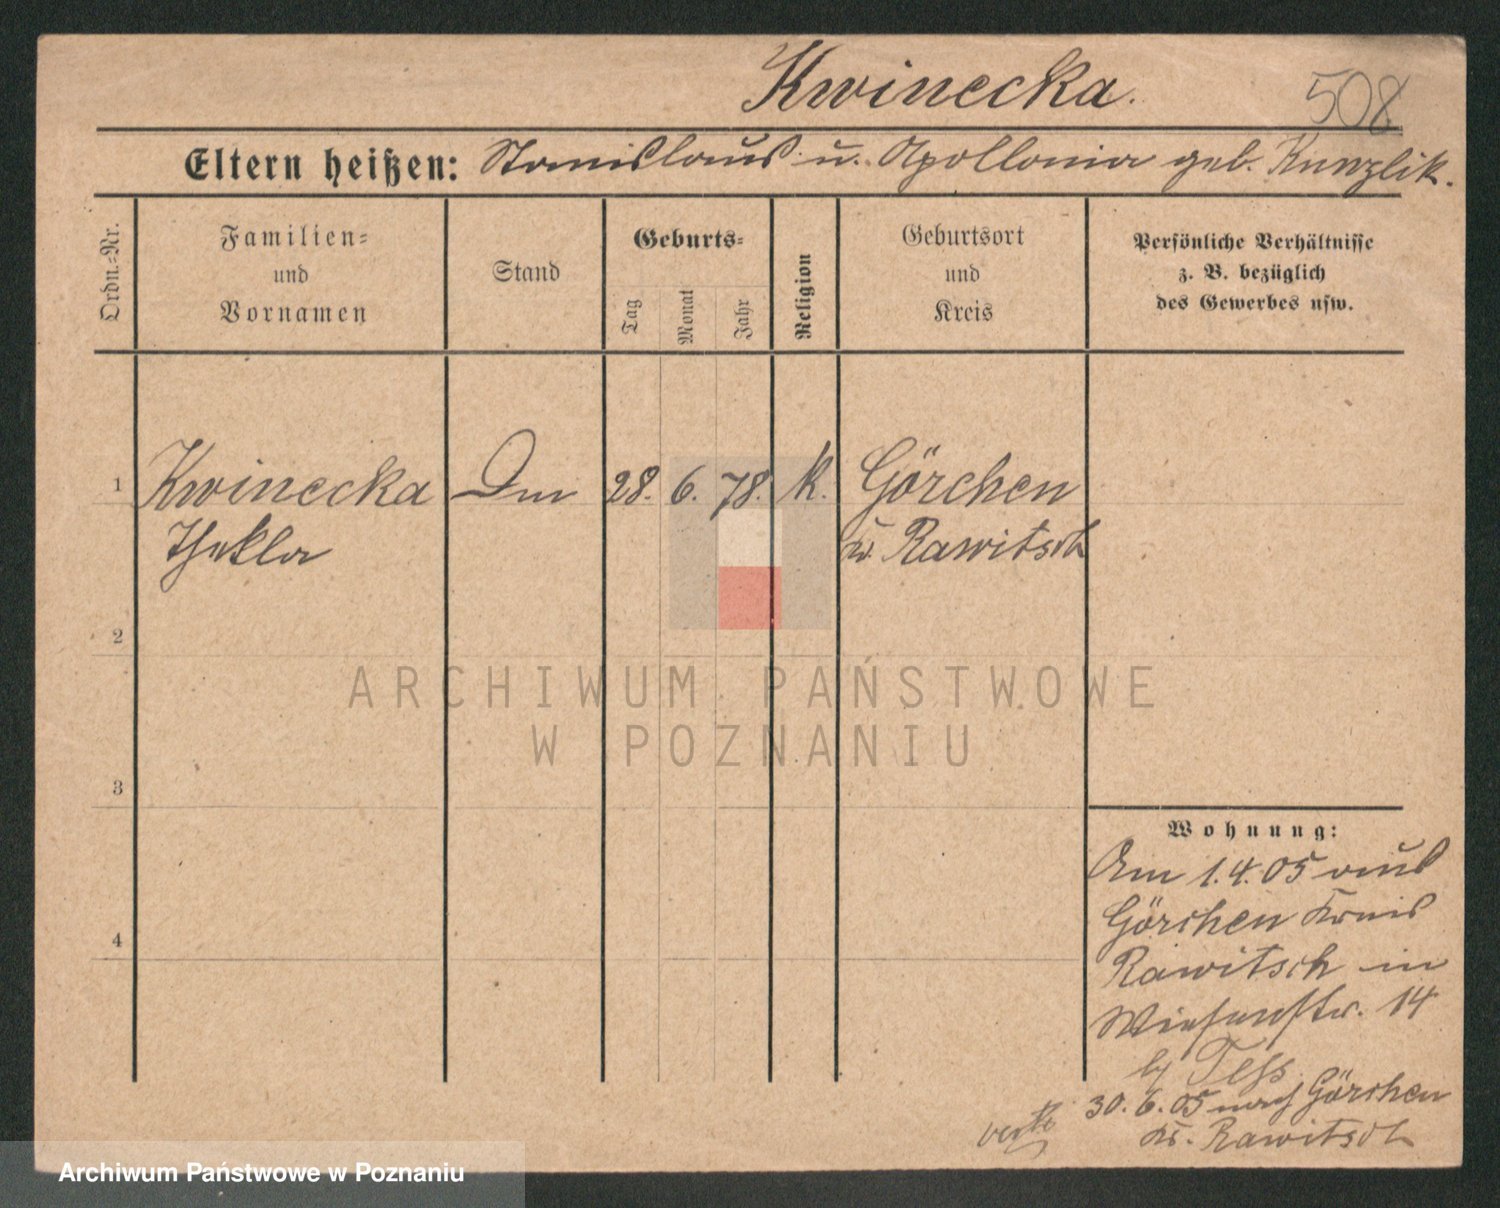 Kwinecka.
508
Eltern heißen: Stanislaus u. Apollonia geb. Kunzlik.
Ordn.-Nr.
Familien-
und
Vornamen
Stand
Geburts-
Tag
Monat
Jahr
Religion
Geburtsort
und
Kreis
Persönliche Verhältnisse
z. B. bezüglich
des Gewerbes usw.
1 Kwinecka 28. 6. 78. k. Görchen
Thekla Kr. Rawitsch
2
3
4
ARCHIWUM PAŃSTWOWE
W POZNANIU
Wohnung:
Am 1.4.05 aus
Görchen Kreis
Rawitsch in
Wiesenstr. 14
30. 6. 05 nach Görchen
Kr. Rawitsch
Archiwum Państwowe w Poznaniu